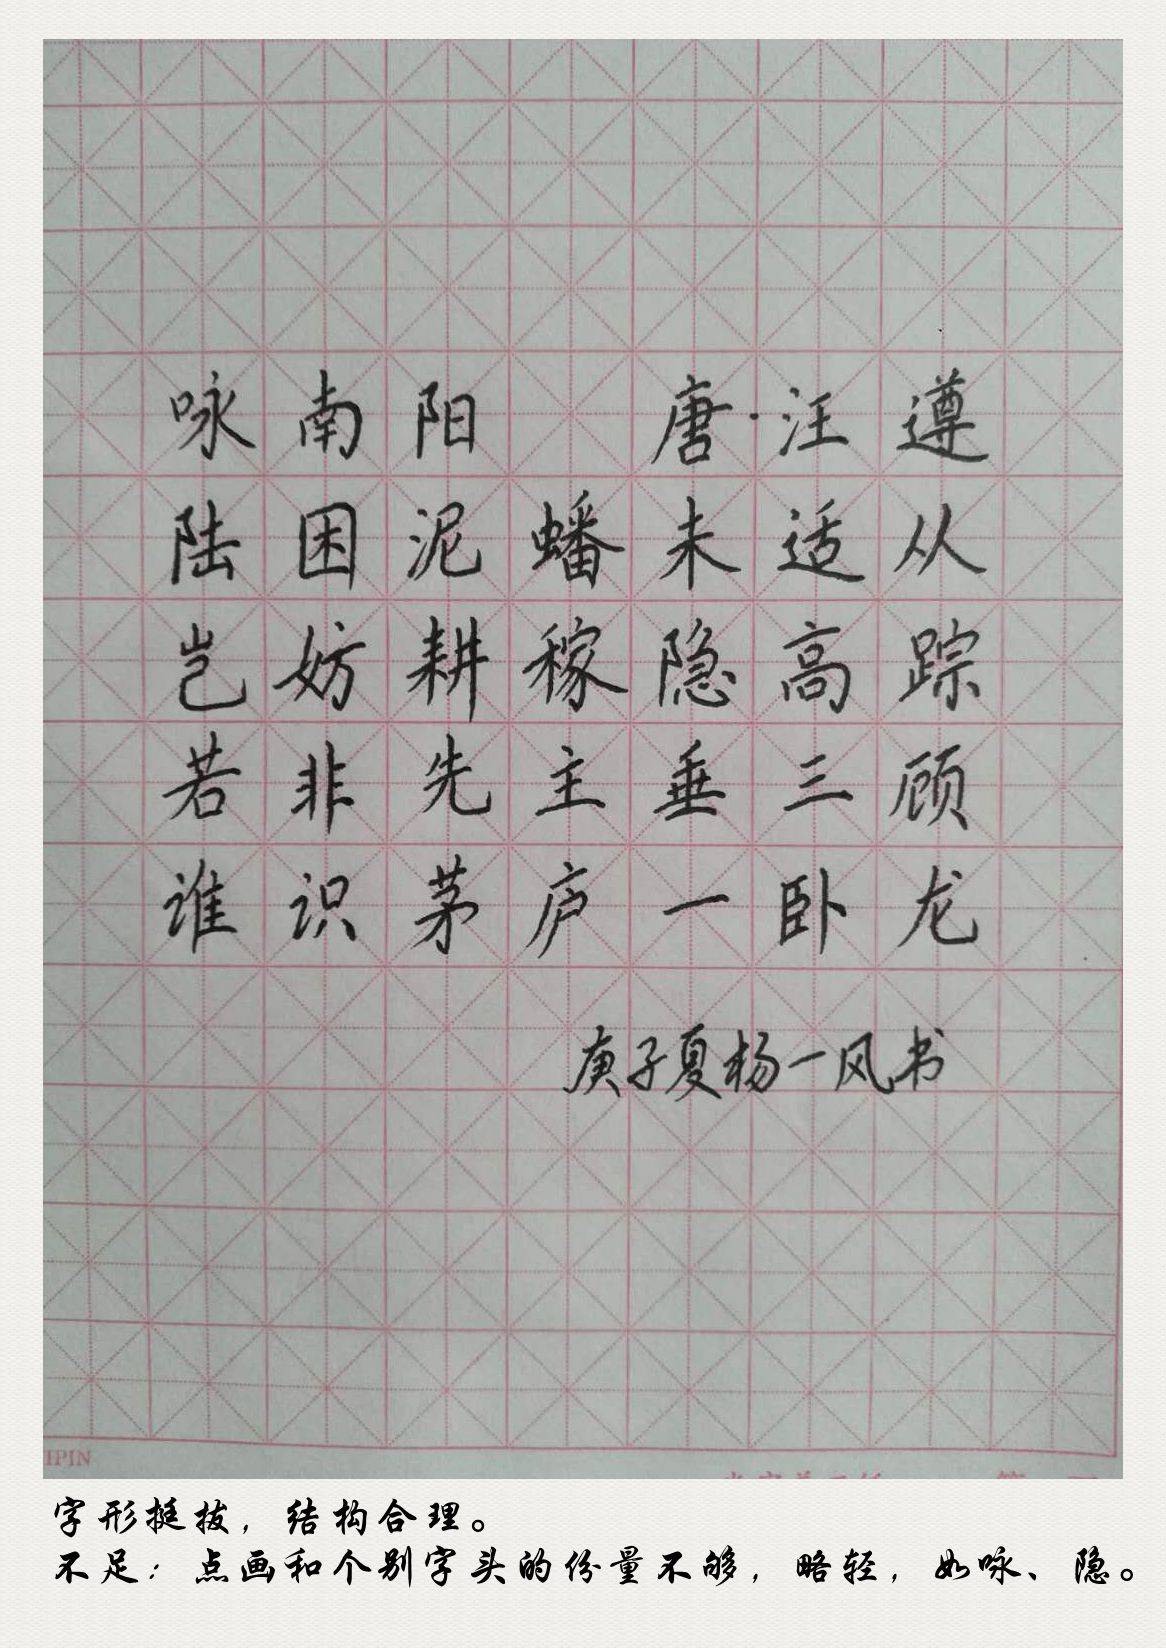 咏南阳 唐·汪遵
陆困泥蟠未适从
岂妨耕稼隐高踪
若非先主垂三顾
谁识茅庐一卧龙
庚子夏杨一风书
IPIN
字形挺拔，结构合理。
不足：点画和个别字头的份量不够，略轻，如咏、隐。